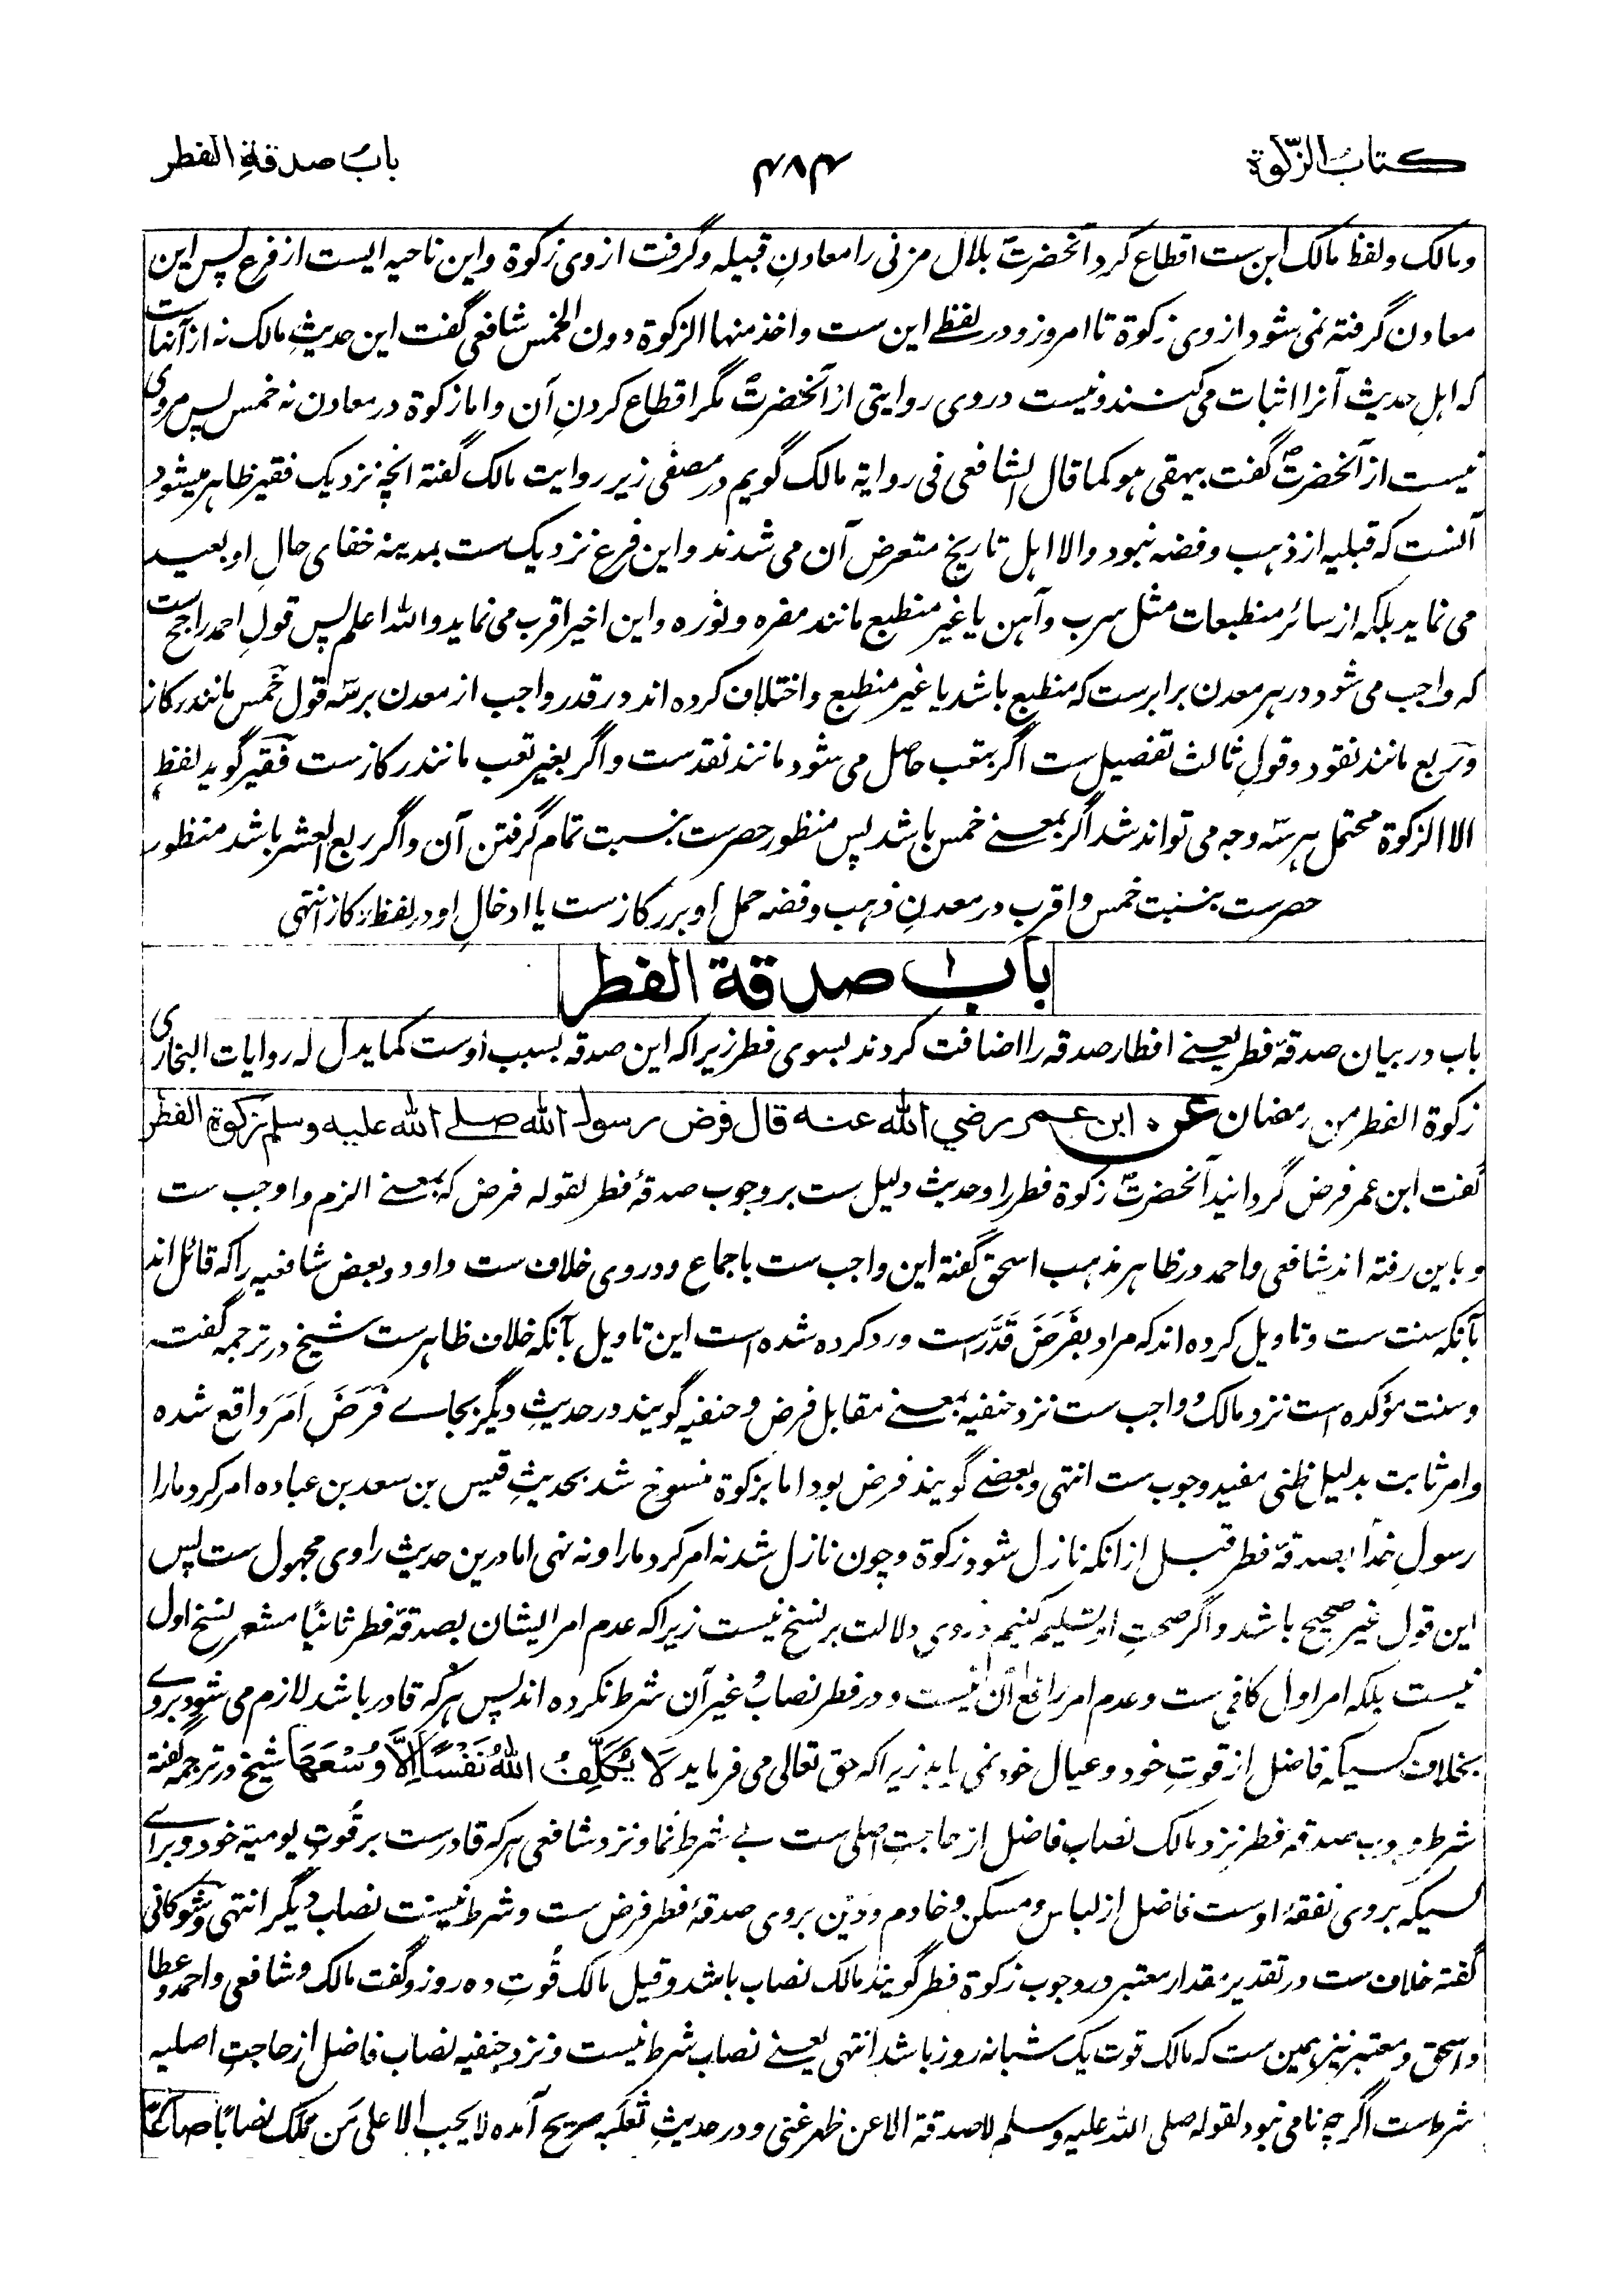 کتاب الزکوة
۴۸۴
باب صدقة الفطر
ومالک ولفظ مالک این ست اقطاع کرد آنحضرتؐ بلال مزنی را معادنِ قبیله وگرفت از وی زکوة واین ناحیه ایست از فرع پس این
معادن گرفته نمی شود از وی زکوة تا امروز ودر لفظے این ست واخذ منها الزکوة دون الخمس شافعی گفت این حدیثِ مالک نه از آنهاست
که اہلِ حدیث آنرا اثبات می کنند ونیست در وی روایتی از آنحضرتؐ مگر اقطاع کردنِ آن واما زکوة در معادن نه خمس پس مروی
نیست از آنحضرتؐ گفت بیهقی ہو کما قال الشافعی فی روایة مالک گویم در مصفی زیر روایت مالک گفته انچه نزدیک فقیر ظاہر میشود
آنست که قبلیه از ذہب وفضه نبود والا اہل تاریخ متعرض آن می شدند واین فرع نزدیک ست بمدینه خفای حالِ او بعید
می نماید بلکه از سائر منطبعات مثل سرب وآہن یا غیر منطبع مانند مغره ونوره واین اخیر اقرب می نماید واللہ اعلم پس قولِ احمد راجح ست
که واجب می شود در ہر معدن برابرست که منطبع باشد یا غیر منطبع واختلاف کرده اند در قدر واجب از معدن برسه قول خمس مانند رکاز
وربع مانند نقود وقولِ ثالث تفصیل ست اگر بتعب حاصل می شود مانند نقدست واگر بغیر تعب مانند رکازست فقیر گوید لفظِ
الا الزکوة محتمل ہر سه وجه می تواند شد اگر بمعنے خمس باشد پس منظور حصرست بنسبت تمام گرفتن آن واگر ربع العشر باشد منظور
حصرست بنسبت خمس واقرب در معدنِ ذہب وفضه حمل او بر رکازست یا ادخالِ او در لفظ رکاز انتهی
باب صدقة الفطر
باب در بیان صدقهٔ فطر یعنے افطار صدقه را اضافت کردند بسوی فطر زیرا که این صدقه بسبب اوست کما یدل له روایات البخاری
زکوة الفطر من رمضان عن ابن عمر رضي الله عنه قال فرض رسول الله صلے الله علیه وسلم زکوة الفطر
گفت ابن عمر فرض گردانید آنحضرتؐ زکوة فطر را وحدیث دلیل ست بر وجوب صدقهٔ فطر لقوله فرض که بمعنے الزم واوجب ست
وباین رفته اند شافعی واحمد در ظاہر مذہب اسحق گفته این واجب ست باجماع ودر وی خلاف ست داود وبعض شافعیه را که قائل اند
بآنکه سنت ست وتاویل کرده اند که مراد بفَرَضَ قَدَّرَ است ورد کرده شده است این تاویل بآنکه خلاف ظاہرست شیخ در ترجمه گفته
وسنت مؤکده است نزد مالک وواجب ست نزد حنفیه بمعنے مقابل فرض وحنفیه گویند در حدیثِ دیگر بجاے فَرَضَ اَمَرَ واقع شده
وامر ثابت بدلیل ظنی مفید وجوب ست انتهی وبعضے گویند فرض بود اما بزکوة منسوخ شد بحدیثِ قیس بن سعد بن عباده امر کرد مارا
رسولِ خدا بصدقهٔ فطر قبل از انکه نازل شود زکوة وچون نازل شد نه امر کرد مارا ونه نهی اما درین حدیث راوی مجہول ست پس
این قول غیر صحیح باشد واگر صحتِ او تسلیم کنیم در وی دلالت بر نسخ نیست زیرا که عدم امر ایشان بصدقهٔ فطر ثانیًا مشعر نسخ اول
نیست بلکه امر اول کافی ست وعدم امر رافع آن نیست ودر فطر نصاب وغیر آن شرط نکرده اند پس ہر که قادر باشد لازم می شود بروے
بخلاف کسیکه فاضل از قوتِ خود وعیال خود نمی یابد زیرا که حق تعالی می فرماید لَا یُکَلِّفُ اللهُ نَفْسًا اِلَّا وُسْعَهَا شیخ در ترجمه گفته
شرط وجوب صدقهٔ فطر نزد مالک نصاب فاضل از حاجتِ اصلی ست بے شرط نما ونزد شافعی ہر که قادرست بر قُوتِ یومیهٔ خود وبراے
کسیکه بروی نفقهٔ اوست فاضل از لباس ومسکن وخادم ودَین بروی صدقهٔ فطر فرض ست وشرط نیست نصاب دیگر انتهی وشوکانی
گفته خلاف ست در تقدیر مقدار معتبر در وجوب زکوة فطر گویند مالک نصاب باشد وقیل مالک قُوتِ ده روز وگفت مالک وشافعی واحمد وعطا
واسحق ومعتبر نیز ہمین ست که مالک قوت یک شبانه روز باشد انتهی یعنے نصاب شرط نیست ونزد حنفیه نصاب فاضل از حاجتِ اصلیه
شرط ست اگرچه نامی نبود لقوله صلی اللہ علیه وسلم لا صدقة الا عن ظهر غنی ودر حدیثِ ثعلبه صریح آمده لا یجب الا علی من ملک نصابًا صاعًا